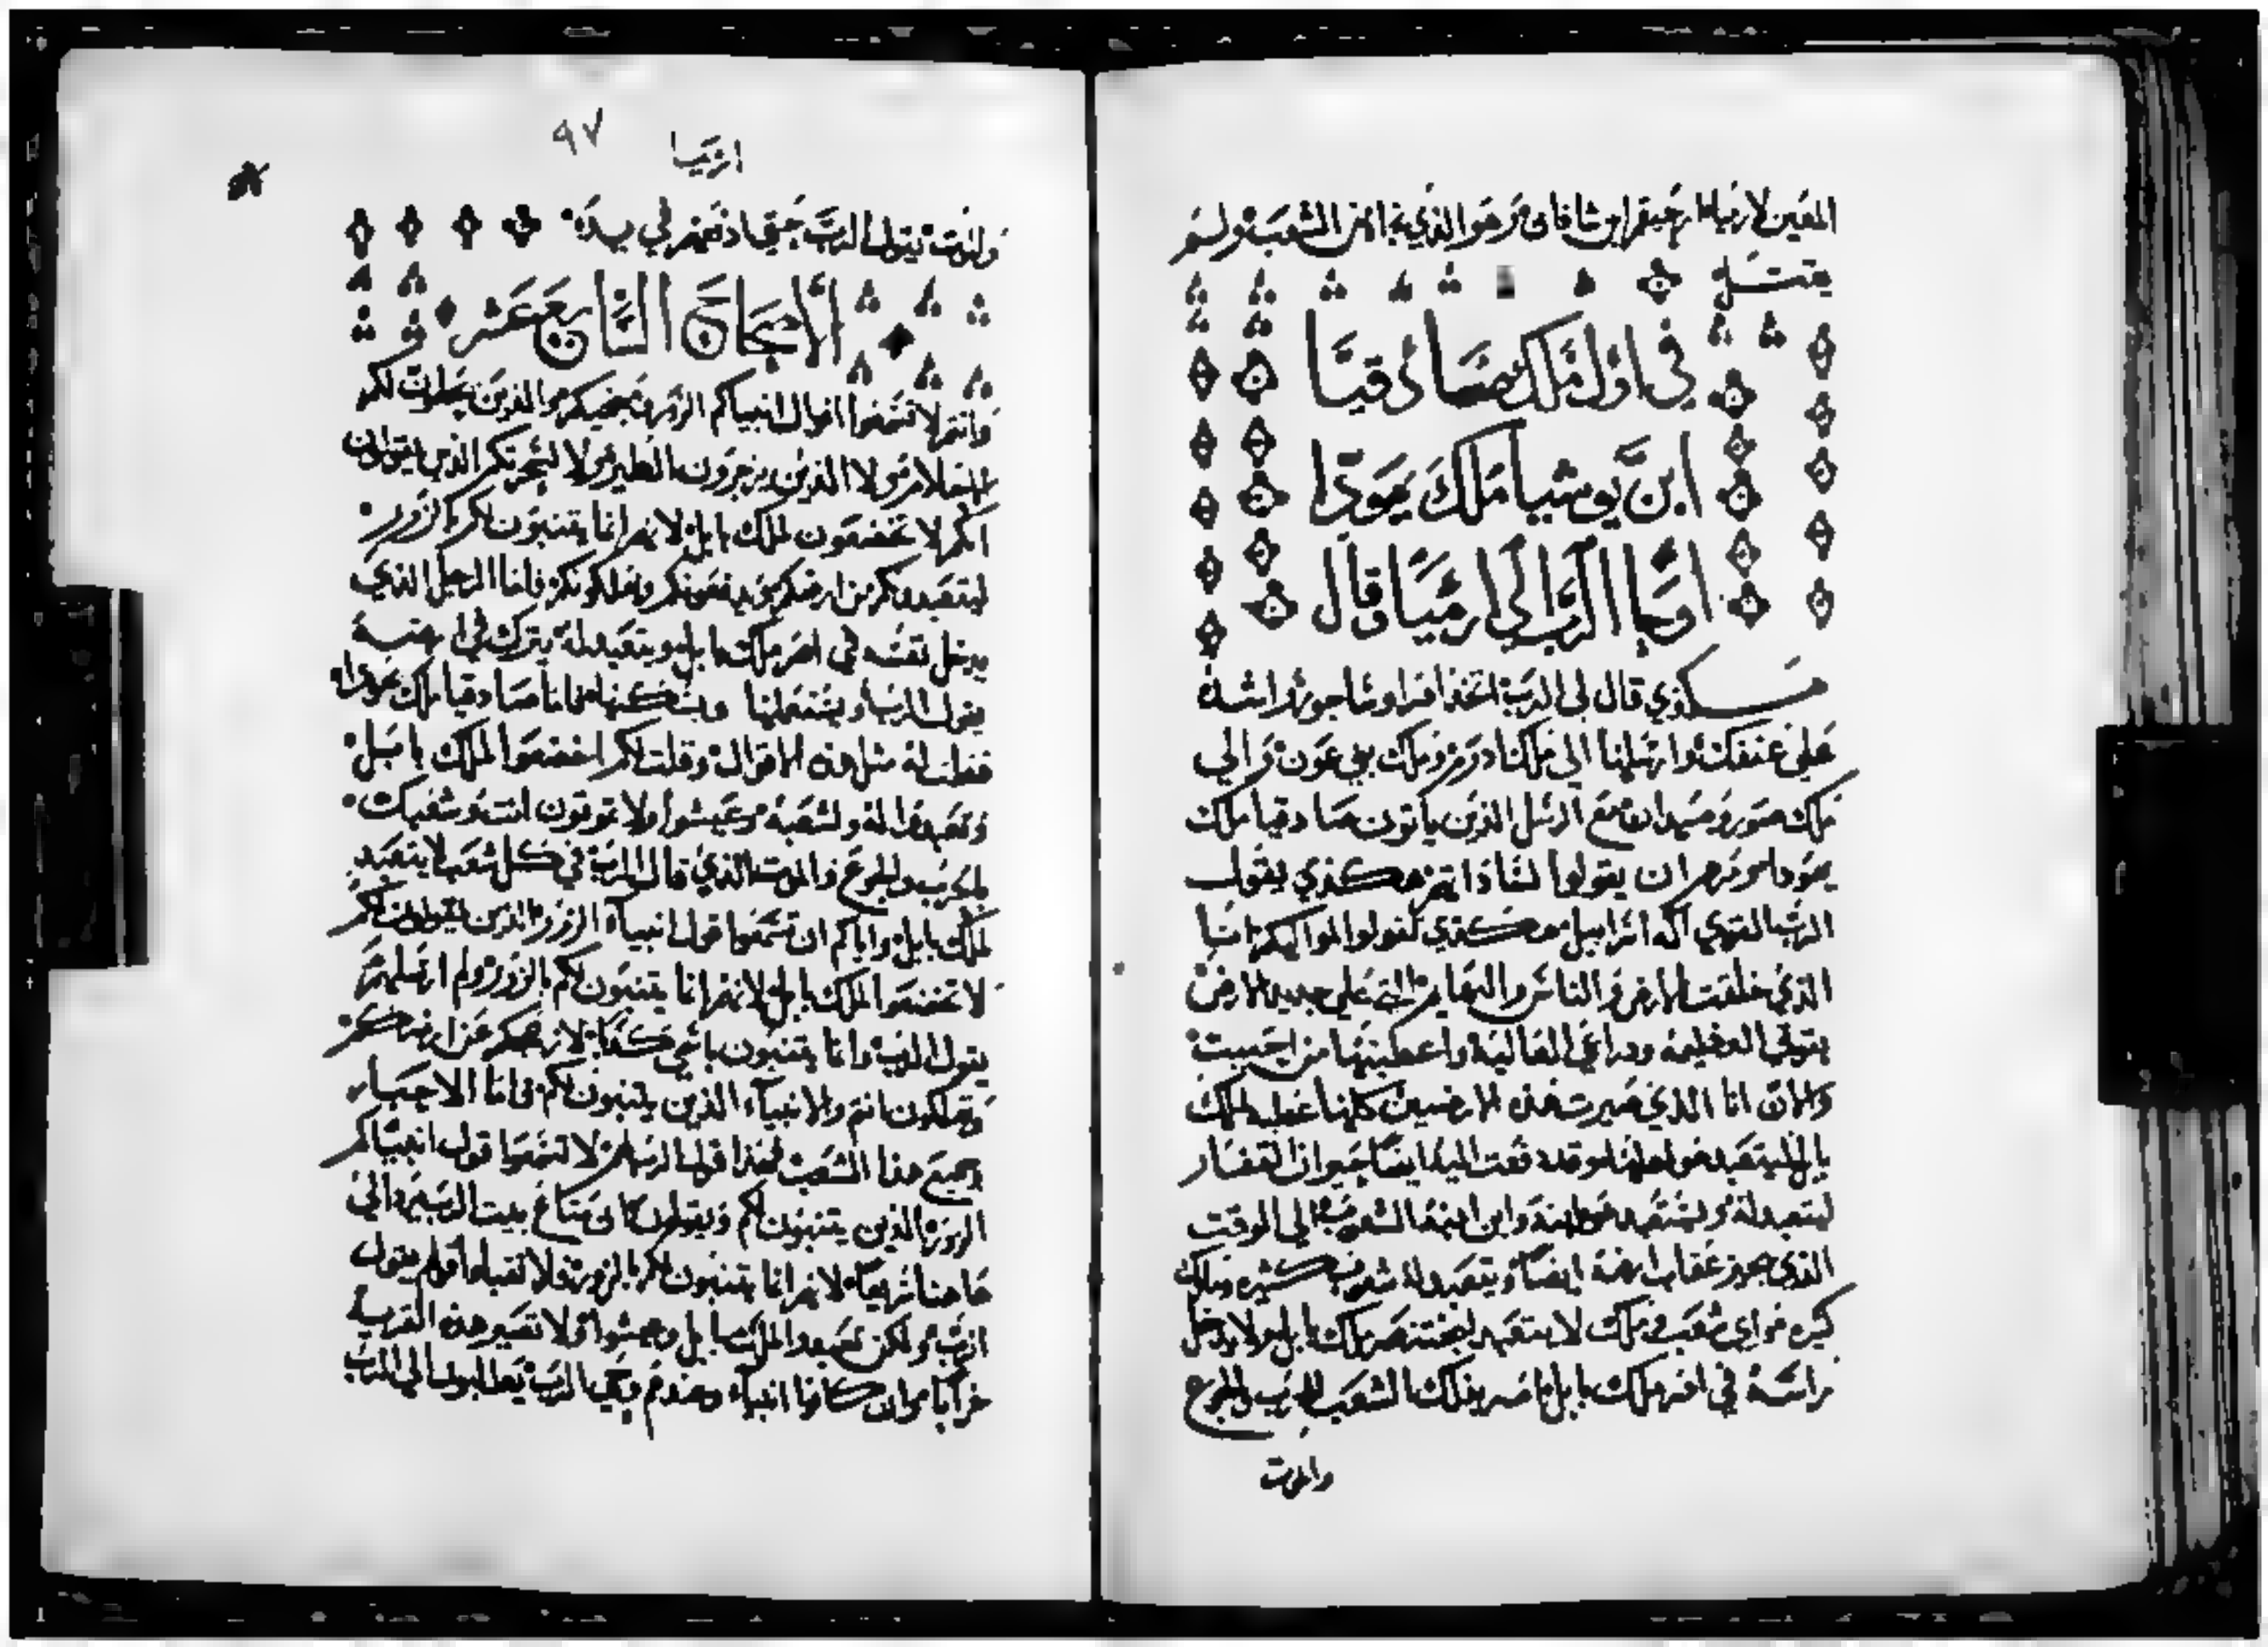 المعين لارميا احيقم ابن شافان وهو الذي نجاه من الشعب ولم
يقتل
في اول ملك صادقيا
ابن يوشيا ملك يهودا
اوحا الرب الي ارميا وقال
هكذي قال لي الرب اتخذ افراوساجور واشده
علي عنقك وارسلها الي ملك ادوم وملك بني عمون والي
ملك صور وصيدان مع الرسل الذين ياتون صادقيا ملك
يهودا ومرهم ان يقولوا لساداتهم هكذي يقول
الرب القوي اله اسراييل هكذي تقولوا لمواليكم انا
الذي خلقت الارض والناس والبهايم التي علي جديد الارض
بقوتي العظيمه ودراعي العاليه واعطيتها من احببت
والان انا الذي صيرت هذه الارضين كلها عطيه لملك
بابل ليتعبد له اهلها وقد دفعت اليه ايضا حيوان القفار
ليتعبد له ويستعبد هو وابنه وابن ابنه الشعوب الي الوقت
الذي يجوز عقاب ارضه ايضا ويتعبد له شعوب كثيره وملوك
كبيره واي شعب وملك لا يتعبد لبختنصر ملك بابل ولا يدخل
راسه في امر ملك بابل اضرب ذلك الشعب بالحرب والجوع
والموت
ارميا
٩٧
والموت يقول الرب حتي اذفعهم في يده
الاصحاح السابع عشر
وانتم لا تسمعوا اقوال انبياكم الزور ومنجميكم والذين يحلمون لكم
الاحلام ولا الذين يزجرون الطير ولا لسحرتكم الذين يقولون
انكم لا تخضعون لملك بابل لانهم انما يتنبون لكم بالزور
ليتعبدوكم من ارضكم ويدفعونكم ويهلكونكم فاما الرجل الذي
يدخل نفسه في امر ملك بابل ويتعبد له يترك في ارضه
يقول الرب ويستعملها ويسكنها فاما صادقيا ملك يهودا
فقلت له مثل هذه الاقوال وقلت لكم اخضعوا لملك بابل
وتعبدوا له ولشعبه وعيشوا ولا تموتون انت وشعبك
بالحرب والجوع والموت الذي قال الرب في كل شعب لا يتعبد
لملك بابل واياكم ان تسمعوا قول انبياء الزور الذين يقولون لكم
لا تخضعوا لملك بابل لانهم انما يتنبون لكم بالزور ولم ارسلهم
يقول الرب وانما يتنبون باسمي كذبا لازيحكم عن ارضكم
وتهلكون انتم والانبياء الذين يتنبون لكم واما الاحبار
وجميع هذا الشعب فهكذا قول الرب لهم لا تسمعوا قول انبياكم
الزور الذين يتنبون لكم ويقولون ان متاع بيت الرب يرد الي
هاهنا سريعا لانهم انما يتنبون لكم بالزور ولا تقبلوا قولهم يقول
الرب ولكن تعبدوا لملك بابل وعيشوا ولا تصير هذه القريه
خرابا وان كانوا انبياء وعندهم وحي الرب يطلبوا الي الرب